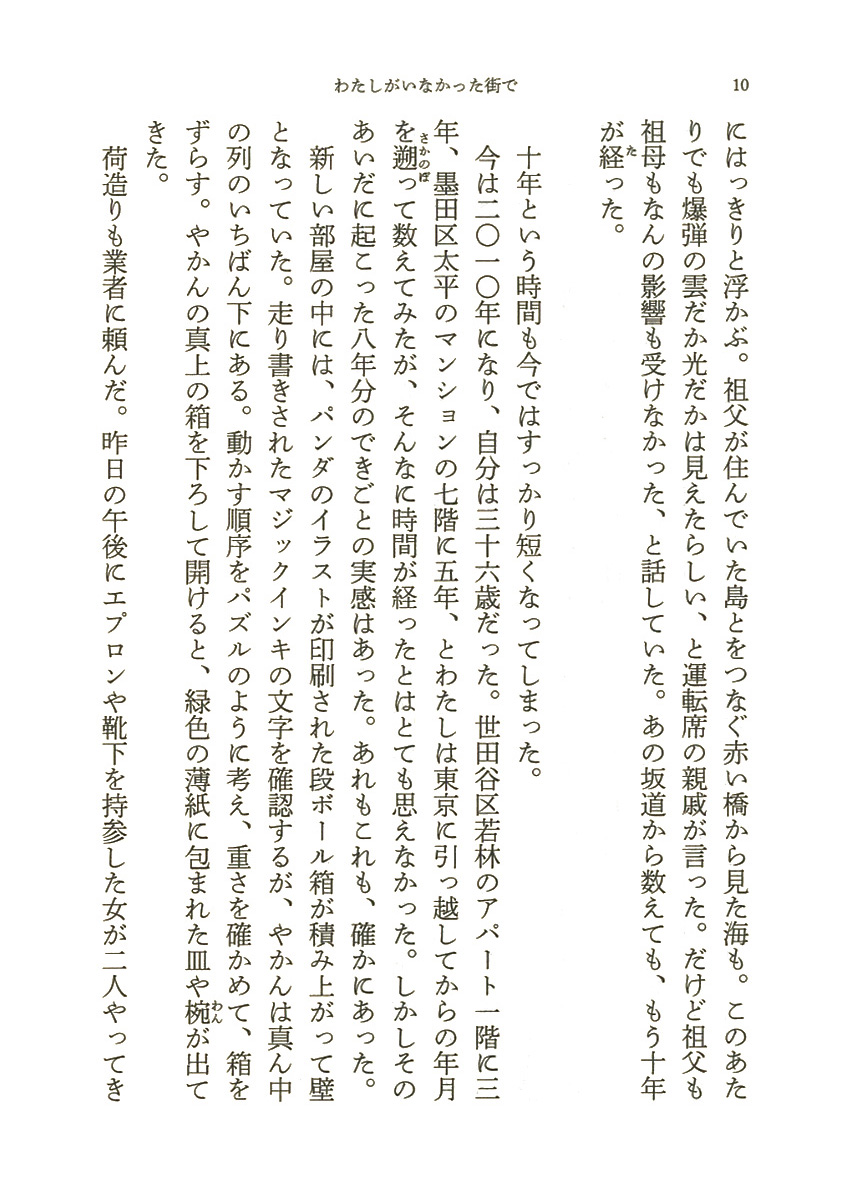 わたしがいなかった街で
10
にはっきりと浮かぶ。祖父が住んでいた島とをつなぐ赤い橋から見た海も。このあた
りでも爆弾の雲だか光だかは見えたらしい、と運転席の親戚が言った。だけど祖父も
祖母もなんの影響も受けなかった、と話していた。あの坂道から数えても、もう十年
が経った。
た
十年という時間も今ではすっかり短くなってしまった。
今は二〇一〇年になり、自分は三十六歳だった。世田谷区若林のアパート一階に三
年、墨田区太平のマンションの七階に五年、とわたしは東京に引っ越してからの年月
を遡って数えてみたが、そんなに時間が経ったとはとても思えなかった。しかしその
さかのぼ
あいだに起こった八年分のできごとの実感はあった。あれもこれも、確かにあった。
新しい部屋の中には、パンダのイラストが印刷された段ボール箱が積み上がって壁
となっていた。走り書きされたマジックインキの文字を確認するが、やかんは真ん中
の列のいちばん下にある。動かす順序をパズルのように考え、重さを確かめて、箱を
ずらす。やかんの真上の箱を下ろして開けると、緑色の薄紙に包まれた皿や椀が出て
わん
きた。
荷造りも業者に頼んだ。昨日の午後にエプロンや靴下を持参した女が二人やってき